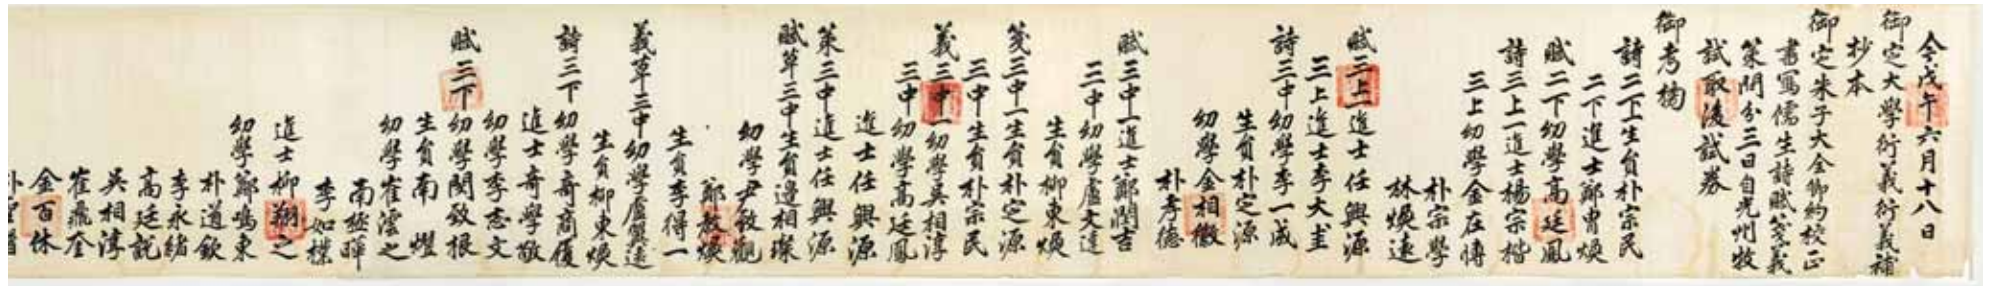 今戊午六月十八日
御定大學衍義衍義補
抄本
御定朱子大全御約校正
書寫儒生詩賦箋義
策問分三日自光州牧
試取後試券
御考榜
詩二下生負朴宗民
二下進士鄭曾煥
賦二下幼學高廷鳳
詩三上一進士楊宗楷
三上幼學金在博
朴宗學
林煥遠
賦三上一進士任興源
三上進士李大圭
詩三中幼學李一咸
生負朴定源
幼學金相徽
朴孝德
賦三中一進士鄭潤吉
三中幼學盧文達
生負柳東煥
箋三中一生負朴定源
三中生負朴宗民
義三中一幼學吳相淳
三中幼學高廷鳳
進士任興源
策三中進士任興源
賦草三中生負邊相璨
幼學尹致觀
鄭敎煥
生負李得一
義草三中幼學盧璧遠
生負柳東煥
詩三下幼學奇商履
進士奇學敬
幼學李志文
賦三下幼學閔致根
生負南熤
幼學崔澐之
南極暉
李如樸
進士柳翔之
幼學鄭鳴東
朴道欽
李永緒
高廷說
吳相淳
崔鼎全
金百休